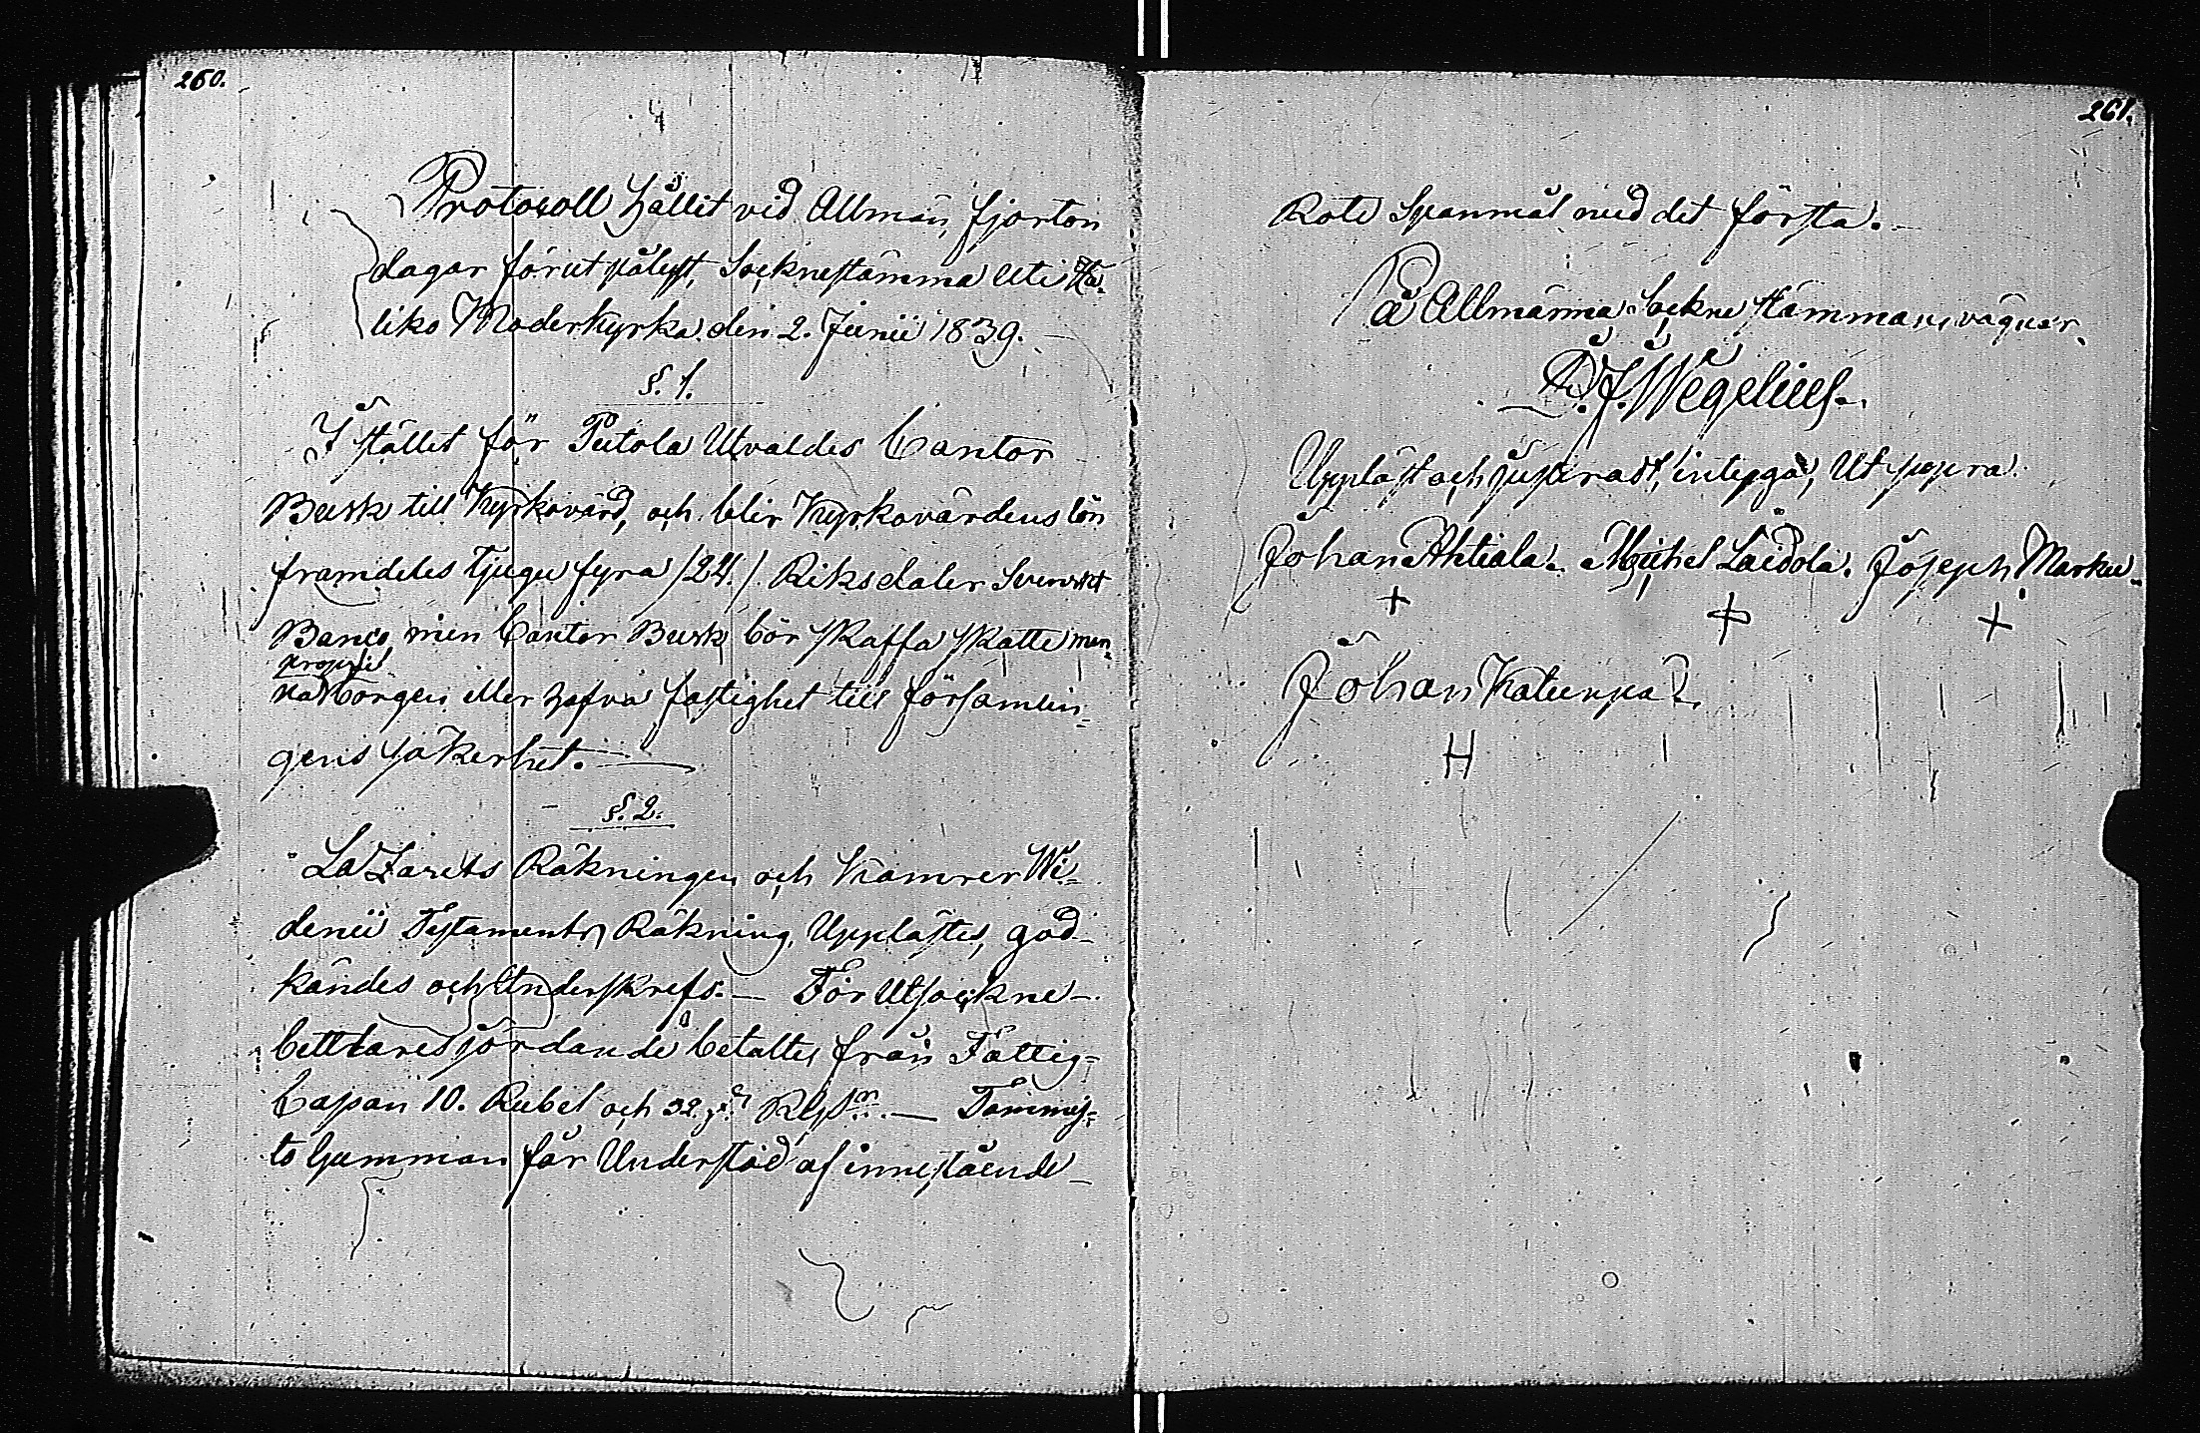 260.
Protocoll hållit vid Allmän, fjorton
dagar förut pålyst, Socknestämma uti Ha-
liko Moderkyrka den 2. Junii 1839.
§. 1.
I stället för Putola Utvaldes Cantor
Busk till Kyrkovärd, och blir Kyrkovärdens lön
framdeles tjugu fyra /24./ Riksdaler Svenskt
Banco, men Cantor Busk bör skaffa skatteman-
na borgen eller hafva fastighet till församlin-
gens säkerhet.
§. 2.
Lazarets Räkningen och Kamrer Wi-
denii Testaments Räkning, Upplästes, god-
kändes och Underskrefs. — För Utsockne-
bettlares jordande betaltes från Fattig-
Cassan 10. Rubel och 32. RGS. — Tammis-
to Gumman får Understöd af innestående
261.
Rote Spanmål med det första.
På Allmänna Sockne Stämmans vägnar,
D. J. Wegelius.
Uppläst och justeradt, intyga, Ut supra.
Johan Ahtiala. Michel Laidola. Joseph Marku.
+ + +
Johan Katunpä.
H